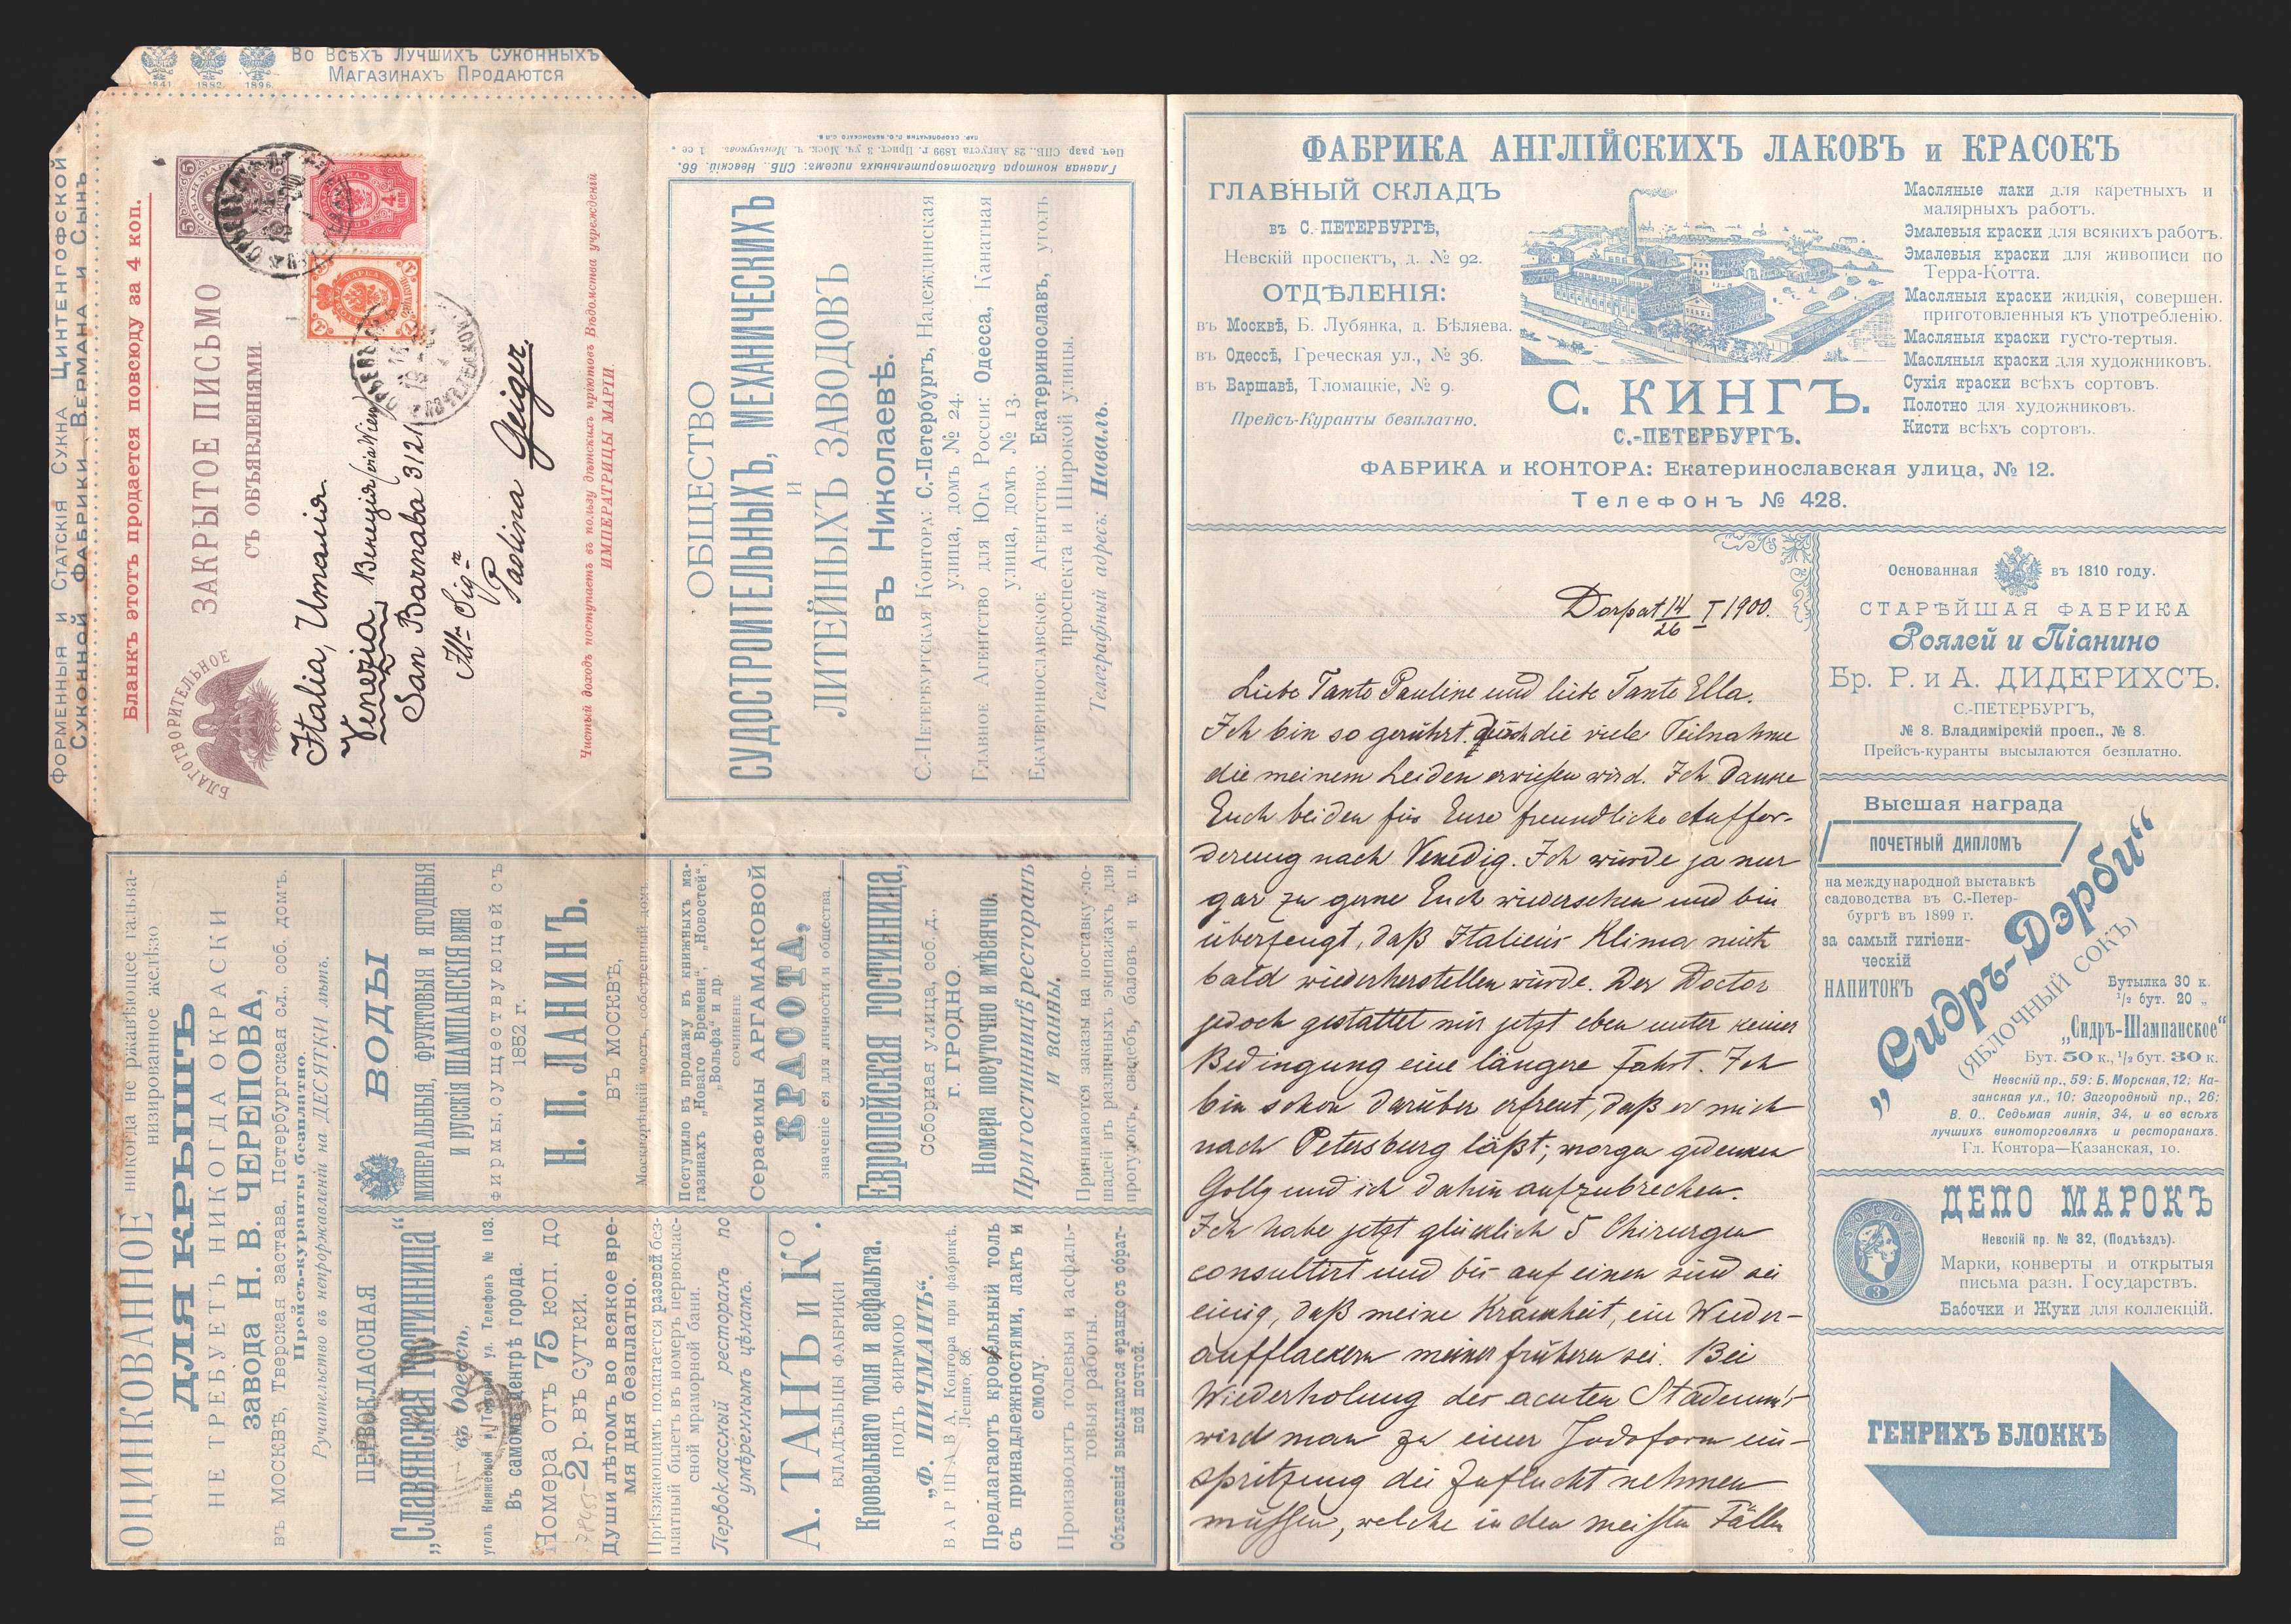 Во Всѣхъ Лучшихъ Суконныхъ
Магазинахъ Продаются
1841 1882 1896
Форменныя и Статскія Сукна Цинтенгофской
Суконной Фабрики Вермана и Сынъ
Бланкъ этотъ продается повсюду за 4 коп.
БЛАГОТВОРИТЕЛЬНОЕ
ЗАКРЫТОЕ ПИСЬМО
СЪ ОБЪЯВЛЕНІЯМИ.
Italia, Италія.
Venezia, Венеція (via Wien)
San Barnaba 3121
Paolina Geiger.
Чистый доходъ поступаетъ въ пользу дѣтскихъ пріютовъ Вѣдомства учрежденій
ИМПЕРАТРИЦЫ МАРІИ.
Главная контора благотворительныхъ писемъ: СПБ., Невскій, 66.
Печ. разр. СПБ., 28 Августа 1899 г.
ОБЩЕСТВО
СУДОСТРОИТЕЛЬНЫХЪ, МЕХАНИЧЕСКИХЪ
И
ЛИТЕЙНЫХЪ ЗАВОДОВЪ
въ Николаевѣ.
С.-Петербургская Контора: С.-Петербургъ, Надеждинская
улица, домъ № 24.
Главное Агентство для Юга Россіи: Одесса, Канатная
улица, домъ № 13.
Екатеринославское Агентство: Екатеринославъ, уголъ
проспекта и Широкой улицы.
Телеграфный адресъ: Наваль.
ОЦИНКОВАННОЕ никогда не ржавѣющее гальва-
низированное желѣзо
ДЛЯ КРЫШЪ
НЕ ТРЕБУЕТЪ НИКОГДА ОКРАСКИ
завода Н. В. ЧЕРЕПОВА,
въ Москвѣ, Тверская застава, Петербургская сл., соб. домъ.
Прейсъ-куранты безплатно.
Ручательство въ непроржавленіи на ДЕСЯТКИ лѣтъ.
ВОДЫ
МИНЕРАЛЬНЫЯ, ФРУКТОВЫЯ И ЯГОДНЫЯ
И РУССКІЯ ШАМПАНСКІЯ ВИНА
ФИРМЫ, СУЩЕСТВУЮЩЕЙ СЪ
1852 г.
Н. П. ЛАНИНЪ.
ВЪ МОСКВѢ,
Москворѣцкій мостъ, собственный домъ.
ПЕРВОКЛАССНАЯ
„СЛАВЯНСКАЯ ГОСТИННИЦА“
въ Одессѣ,
уголъ Княжеской и Торговой ул. Телефонъ № 103.
Въ самомъ центрѣ города.
Номера отъ 75 коп. до
2 р. въ сутки.
Души лѣтомъ во всякое вре-
мя дня безплатно.
Пріѣзжающимъ полагается разовой без-
платный билетъ въ номеръ первоклас-
сной мраморной бани.
Первоклассный ресторанъ по
умѣреннымъ цѣнамъ.
Поступило въ продажу въ книжныхъ ма-
газинахъ „Новаго Времени“, „Новостей“,
„Вольфа“ и др.
сочиненіе
Серафимы АРГАМАКОВОЙ
КРАСОТА,
значеніе ея для личности и общества.
Европейская гостинница,
Соборная улица, соб. д.,
г. ГРОДНО.
Номера посуточно и мѣсячно.
При гостинницѣ ресторанъ
и ванны.
Принимаются заказы на поставку ло-
шадей въ различныхъ экипажахъ для
прогулокъ, свадебъ, баловъ и т. п.
А. ТАНЪ и Ко.
ВЛАДѢЛЬЦЫ ФАБРИКИ
Кровельнаго толя и асфальта.
ПОДЪ ФИРМОЮ
„Ф. ПИЧМАНЪ“.
ВАРШАВА, Контора при фабрикѣ.
Лешно, 86.
Предлагаютъ кровельный толь
съ принадлежностями, лакъ и
смолу.
Производятъ толевыя и асфаль-
товыя работы.
Объясненія высылаются франко съ обрат-
ной почтой.
ФАБРИКА АНГЛІЙСКИХЪ ЛАКОВЪ и КРАСОКЪ
ГЛАВНЫЙ СКЛАДЪ
въ С.-ПЕТЕРБУРГѢ,
Невскій проспектъ, д. № 92.
ОТДѢЛЕНІЯ:
въ Москвѣ, Б. Лубянка, д. Бѣляева.
въ Одессѣ, Греческая ул., № 36.
въ Варшавѣ, Тломацкіе, № 9.
Прейсъ-Куранты безплатно.
С. КИНГЪ.
С.-ПЕТЕРБУРГЪ.
Масляные лаки для каретныхъ и
малярныхъ работъ.
Эмалевыя краски для всякихъ работъ.
Эмалевыя краски для живописи по
Терра-Котта.
Масляныя краски жидкія, совершен.
приготовленныя къ употребленію.
Масляныя краски густо-тертыя.
Масляныя краски для художниковъ.
Сухія краски всѣхъ сортовъ.
Полотно для художниковъ.
Кисти всѣхъ сортовъ.
ФАБРИКА и КОНТОРА: Екатеринославская улица, № 12.
Телефонъ № 428.
Dorpat 14/26 I 1900.
Liebe Tante Pauline und liebe Tante Ella.
Ich bin so gerührt durch die viele Teilnahme
die meinem Leiden erwiesen wird. Ich danke
Euch beiden für Eure freundliche Auffor-
derung nach Venedig. Ich würde ja nur
gar zu gerne Euch wiedersehen und bin
überzeugt, daß Italien's Klima mich
bald wiederherstellen würde. Der Doctor
jedoch gestattet mir jetzt eben unter keiner
Bedingung eine längere Fahrt. Ich
bin schon darüber erfreut, daß er mich
nach Petersburg läßt; morgen gedenken
Golly und ich dahin aufzubrechen.
Ich habe jetzt glücklich 5 Chirurgen
consultirt und bis auf einen sind sie
einig, daß meine Krankheit, ein Wieder-
aufflackern meiner frühern sei. Bei
Wiederholung des acuten Stadium's
wird man zu einer Jodoform ein-
spritzung die Zuflucht nehmen
müssen, welche in den meisten Fällen
Основанная въ 1810 году.
СТАРѢЙШАЯ ФАБРИКА
Роялей и Піанино
Бр. Р. и А. ДИДЕРИХСЪ.
С.-ПЕТЕРБУРГЪ,
№ 8. Владимірскій просп., № 8.
Прейсъ-куранты высылаются безплатно.
Высшая награда
ПОЧЕТНЫЙ ДИПЛОМЪ
на международной выставкѣ
садоводства въ С.-Петер-
бургѣ въ 1899 г.
за самый гигіени-
ческій
НАПИТОКЪ
„Сидръ-Дэрби“
(ЯБЛОЧНЫЙ СОКЪ)
Бутылка 30 к.
1/2 бут. 20 „
„Сидръ-Шампанское“
Бут. 50 к., 1/2 бут. 30 к.
Невскій пр., 59; Б. Морская, 12; Ка-
занская ул., 10; Загородный пр., 26;
В. О., Седьмая линія, 34, и во всѣхъ
лучшихъ виноторговляхъ и ресторанахъ.
Гл. Контора—Казанская, 10.
ДЕПО МАРОКЪ
Невскій пр. № 32, (Подъѣздъ).
Марки, конверты и открытыя
письма разн. Государствъ.
Бабочки и Жуки для коллекцій.
ГЕНРИХЪ БЛОККЪ